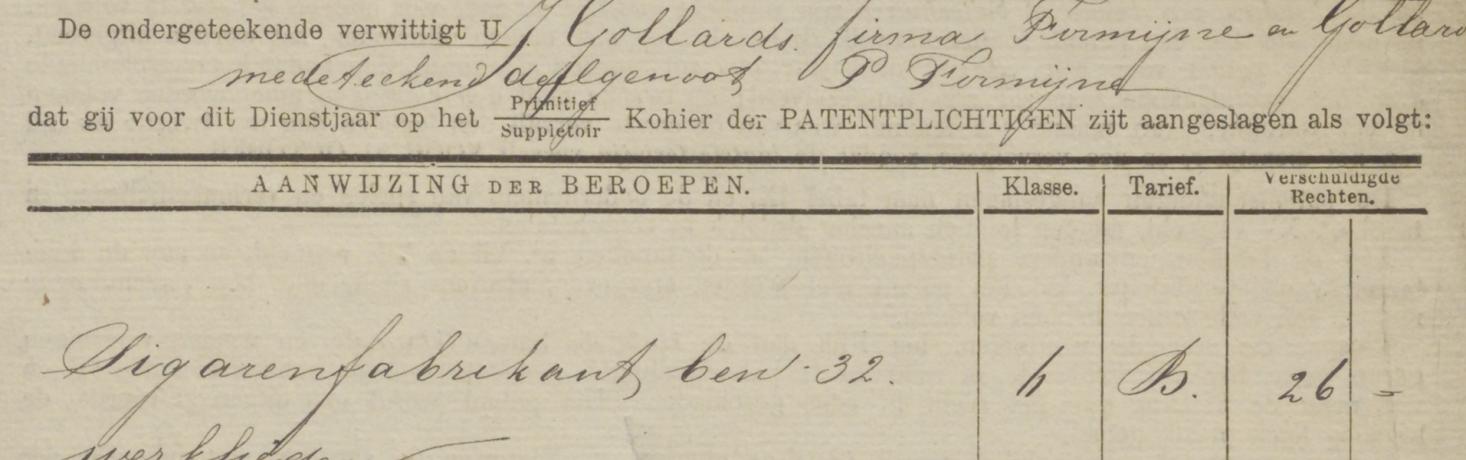 De ondergeteekende verwittigt U J Gollards. firma Formijne en Gollard
medeteekend deelgenoot P Formijne
dat gij voor dit Dienstjaar op het Primitief / Suppletoir Kohier der PATENTPLICHTIGEN zijt aangeslagen als volgt:
AANWIJZING DER BEROEPEN. Klasse. Tarief. Verschuldigde Rechten.
Sigarenfabrikant ben 32. h B. 26 =
werklied